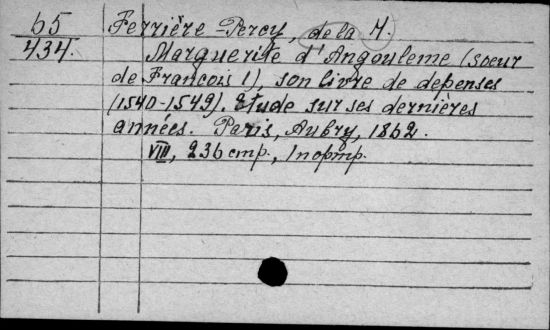 65
434.
Ferrière-Percy, de la H.
Marguerite d'Angouleme (soeur
de Francois 1) son livre de depenses
(1540-1549). Etude sur ses dernières
années. Paris, Aubry, 1862.
VIII, 236 стр., 1 портр.